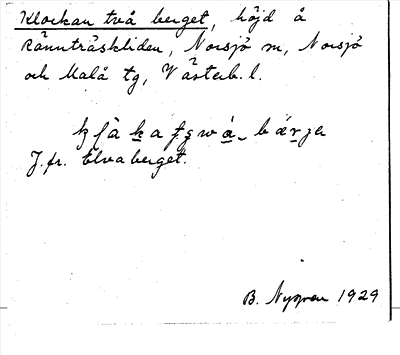 Klockan två berget, höjd å
Rännträskliden, Norsjö sn, Norsjö
och Malå tg, Västerb. l.
J.fr. Elvaberget.
B. Nygren 1929